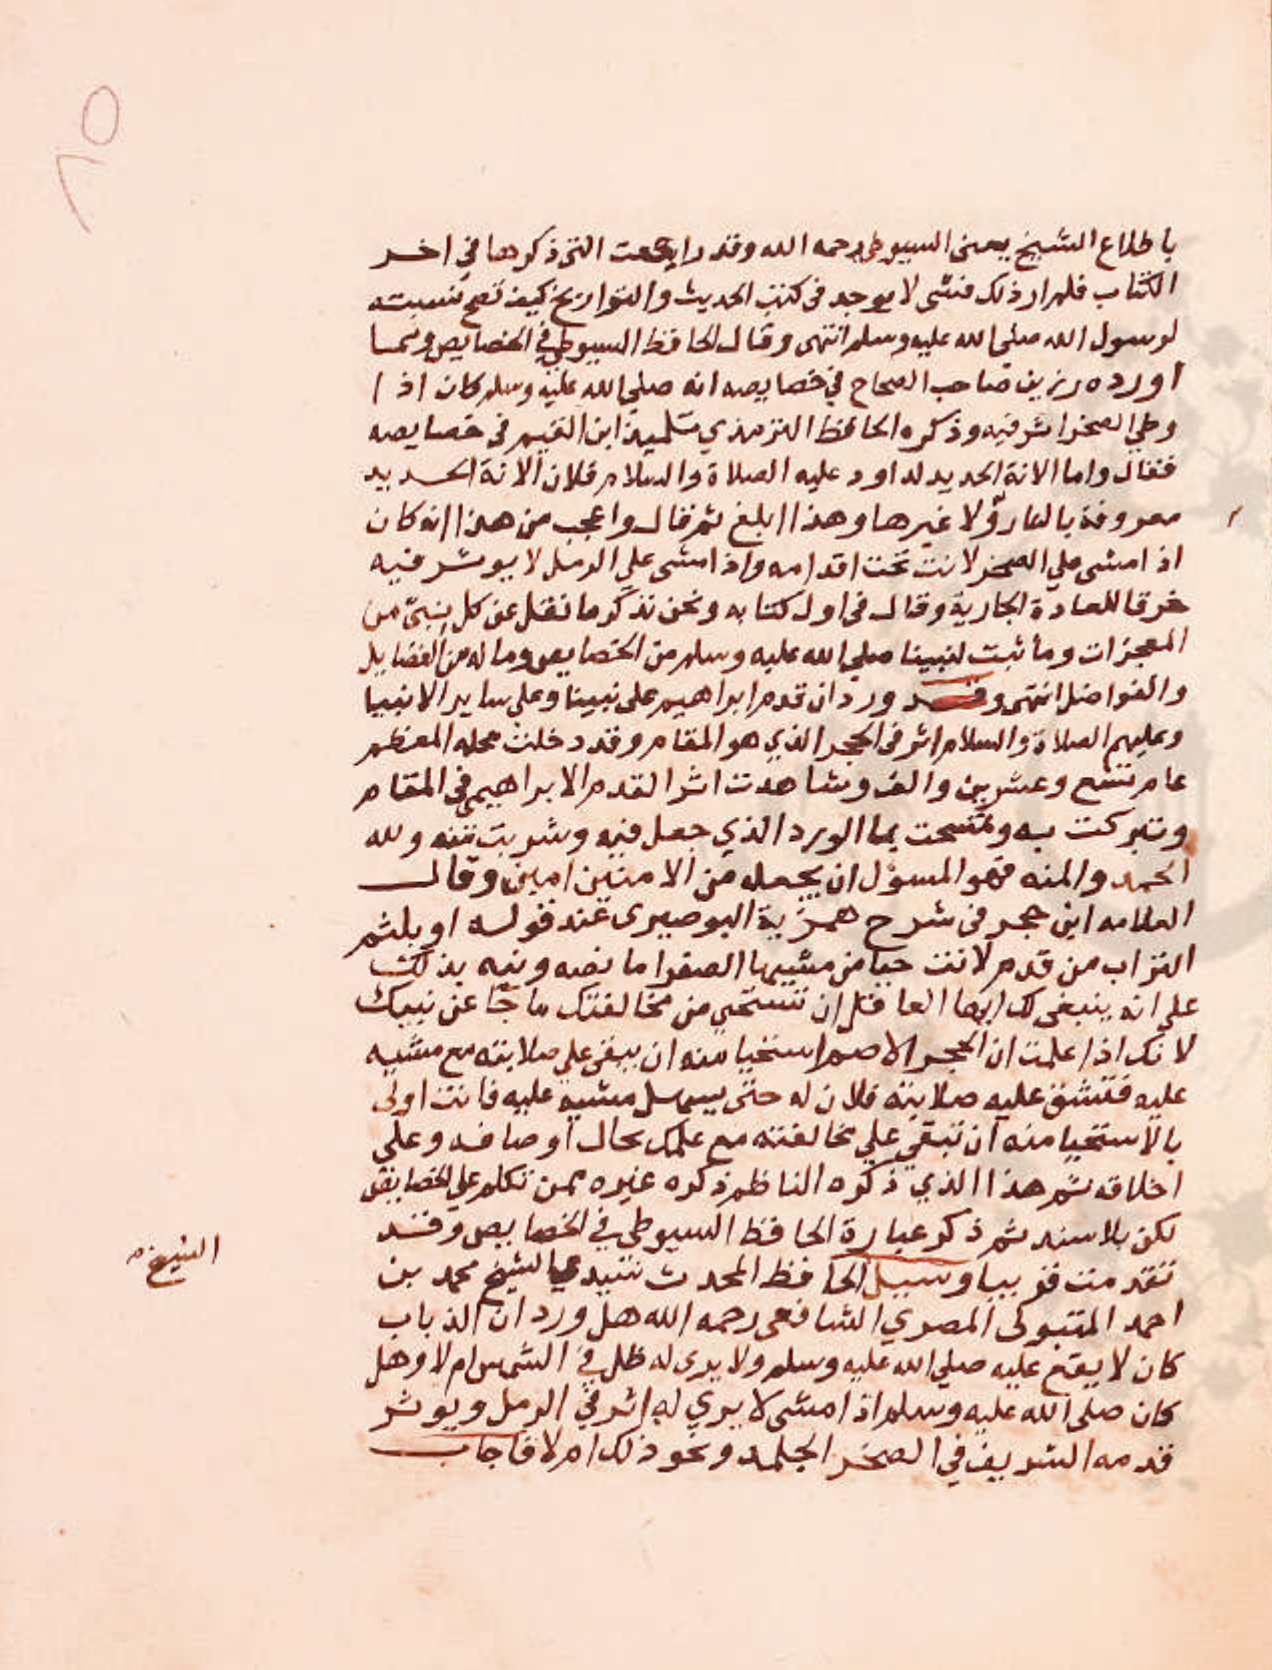 ٨٥
باطلاع الشيخ يعني السيوطي رحمه الله وقد راجعت التي ذكرها في اخر
الكتاب فلم ار ذلك فشي لا يوجد في كتب الحديث والتواريخ كيف تصح نسبته
لرسول الله صلي الله عليه وسلم انتهى وقال الحافظ السيوطي في الخصايص ومما
اورده رزين صاحب الصحاح في خصايصه انه صلي الله عليه وسلم كان اذا
وطي الصخر اثر فيه وذكره الحافظ الترمذي تلميذ ابن القيم في خصايصه
فقال واما الانة الحديد لداود عليه الصلاة والسلام فلان ألانة الحديد
معروفة بالنار ولا غيرها وهذا ابلغ ثم قال واعجب من هذا انه كان
اذا مشى علي الصخر لانت تحت اقدامه واذا مشى علي الرمل لا يوثر فيه
خرقا للعادة الجارية وقال في اول كتابه ونحن نذكر ما نقل عن كل نبيّ من
المعجزات وما ثبت لنبينا صلي الله عليه وسلم من الخصايص وما له من الفضايل
والفواضل انتهى وقد ورد ان قدم ابراهيم على نبينا وعلي ساير الانبيا
وعليهم الصلاة والسلام اثر في الحجر الذي هو المقام وقد دخلت محله المعظم
عام تسع وعشرين والف وشاهدت اثر القدم الابراهيمي في المقام
وتبركت به وتمسحت بما الورد الذي جعل فيه وشربت منه ولله
الحمد والمنه فهو المسؤل ان يجعله من الامنين امين وقال
العلامه ابن حجر في شرح همزية البوصيري عند قوله او بلثم
التراب من قدم لانت حيا من مشيها الصفوا ما نصه ونبه بذلك
علي انه ينبغى لك ايها العاقل ان تستحي من مخالفتك ما جا عن نبيك
لانك اذا علمت ان الحجر الاصم استحيا منه ان يبقى علي صلابته مع مشيه
عليه فتشق عليه صلابته فلان له حتى يسهل مشيه عليه فانت اولى
بالاستحيا منه ان تبقي علي مخالفته مع علمك بحال اوصافه وعلي
اخلاقه ثم هذا الذي ذكره الناظم ذكره غيره ممن تكلم علي الخصايص
لكن بلا سند ثم ذكر عبارة الحافظ السيوطي في الخصايص وقد
تقدمت قريبا وسيل الحافظ المحدث سيدي الشيخ محمد بن
الشيخ
احمد المتبولى المصري الشافعى رحمه الله هل ورد ان الذباب
كان لا يقع عليه صلي الله عليه وسلم ولا يرى له ظل في الشمس ام لا وهل
كان صلى الله عليه وسلم اذا مشى لا يري له اثر في الرمل ويوثر
قدمه الشريف في الصخر الجلمد ونحو ذلك ام لا فاجاب